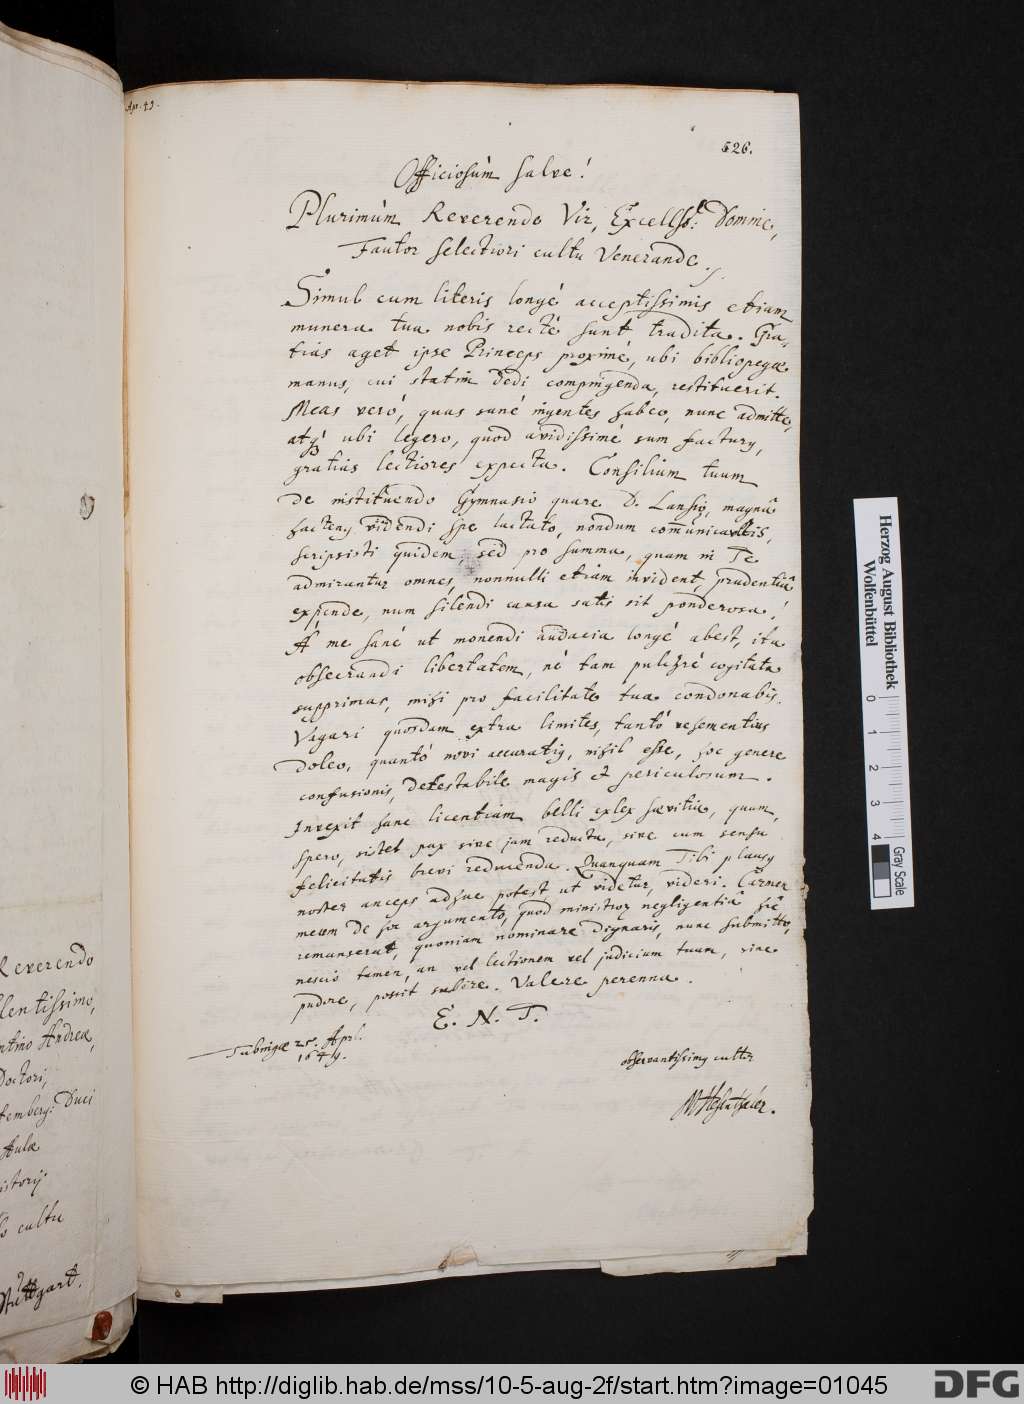 Apr. 49.
526.
Officiosùm salve!
Plurimùm Reverendo Vir, Excellso: Domine,
Fautor selectiori cultu Venerande.
Simul cum literis longé acceptissimis etiam
munera tua nobis recté sunt tradita. Gra-
tias aget ipse Princeps proximé, ubi bibliopegæ
manus, cui statim dedi compingenda, restituerit.
Meas veró, quas sané ingentes habeo, nunc admitte,
atq3 ubi legero, quod avidissimé sum factury,
gratias lectiores expecta. Consilium tuum
de instituendo Gymnasio quare D. Lansio, magnâ
hacteny videndi spe lactato, nondum comunicaveris,
scripsisti quidem, sed pro summa, quam in Te
admirantur omnes, nonnulli etiam invident, prudentiâ
expende, num silendi causa satis sit ponderosa!
A me sané ut monendi audacia longé abest, ita
obsecrandi libertatem, né tam pulchré cogitata
supprimas, mihi pro facilitate tua condonabis.
Vagari quosdam extra limites, tantó vehementius
doleo, quantó novi accuratiy, nihil esse, hoc genere
confusionis, detestabile magis et periculosum.
Invexit hanc licentiam belli exlex sævitia, quam,
spero, sistet pax sive jam reducta, sive cum sensu
felicitatis brevi reducenda. Quanquam Tibi plausy
noster anceps adhuc potest ut videtur, videri. Carmen
meum de hoc argumento, quod ministror negligentiâ hîc
remanserat, quoniam nominare dignaris, nunc submitto,
nescio tamen, an vel lectionem vel judicium tuum, sine
pudore, possit subire. Valere perenna.
E. N. T.
Tubingæ 25. Apl.
1649.
observantissimy cultor
MHesenthaler.
Reverendo
llentissimo,
ntino Andreæ,
Doctori,
temberg: Duci
Aulæ
istorij
cultu
Stuttgart.
Herzog August Bibliothek
Wolfenbüttel
0 1 2 3 4
Gray Scale
© HAB http://diglib.hab.de/mss/10-5-aug-2f/start.htm?image=01045
DFG